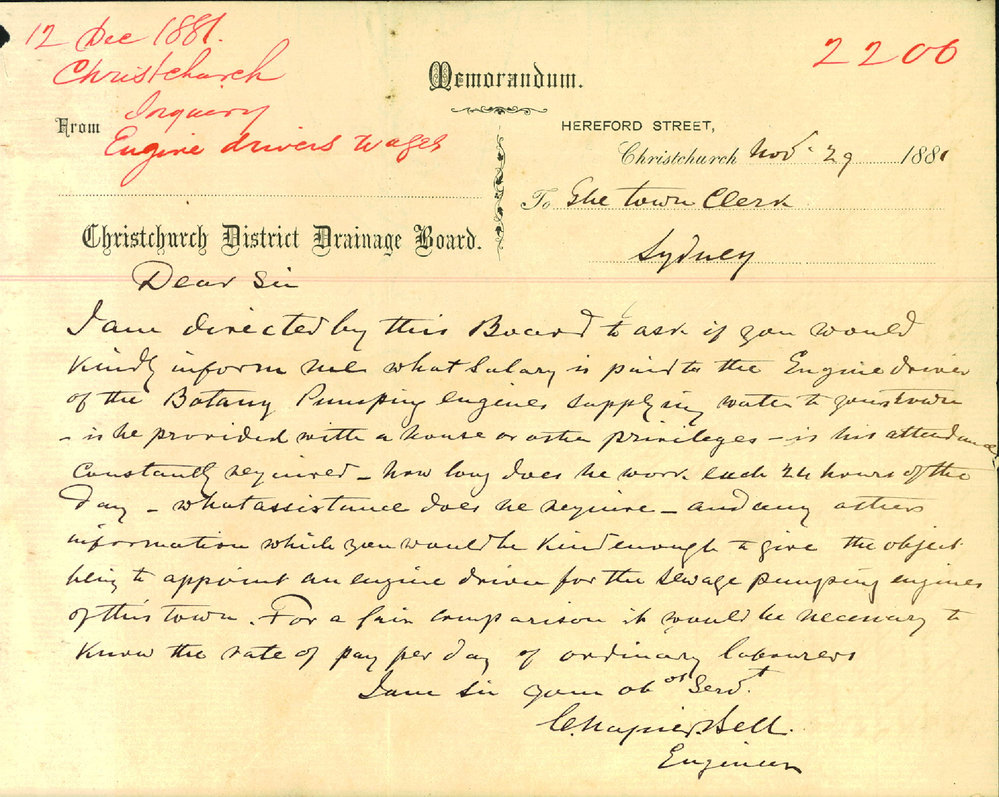 12 Dec 1881.
Christchurch
Inquiry
Engine drivers wages
2206
Memorandum.
From
HEREFORD STREET,
Christchurch Novr. 29 1881
To The Town Clerk
Sydney
Christchurch District Drainage Board.
Dear Sir
I am directed by this Board to ask if you would
kindly inform me what salary is paid to the Engine driver
of the Botany Pumping engines supplying water to your town
- is he provided with a house or other privileges - is his attendance
constantly required - how long does he work each 24 hours of the
day - what assistance does he require - and any others
information which you would be kind enough to give the object
being to appoint an engine driver for the sewage pumping engines
of this town. For a fair comparison it would be necessary to
know the rate of pay per day of ordinary labourers
I am Sir your obt Servt
C. Napier Bell.
Engineer